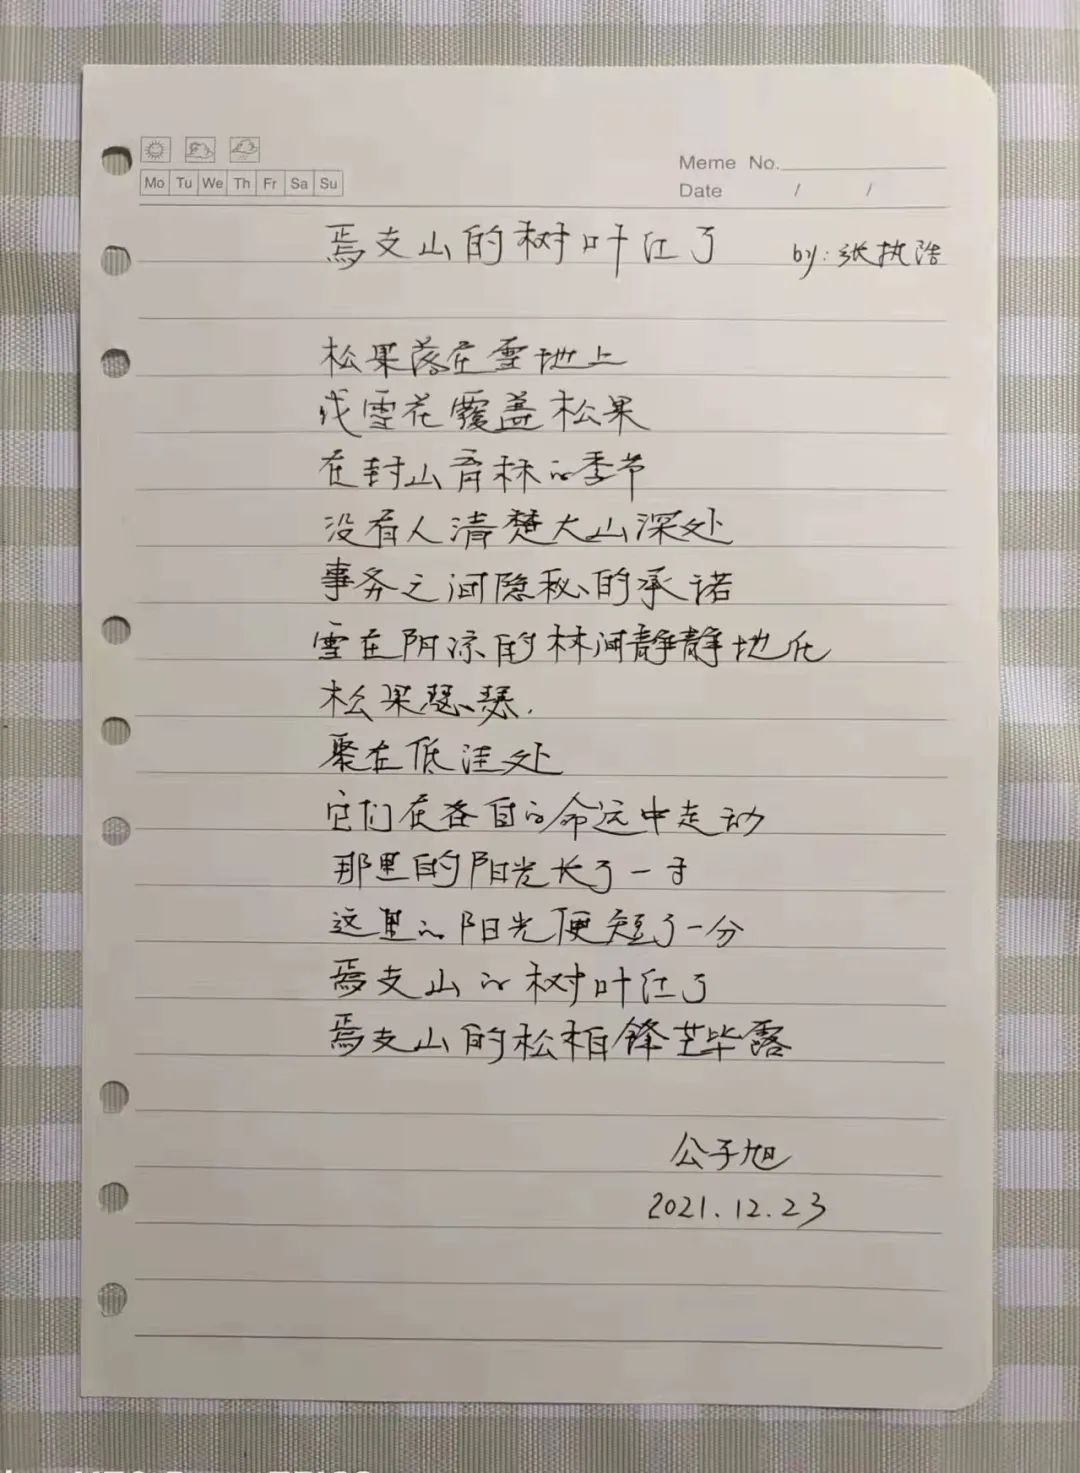 Mo Tu We Th Fr Sa Su
Meme No.
Date / /
焉支山的树叶红了 by:张执浩
松果落在雪地上
或雪花覆盖松果
在封山育林的季节
没有人清楚大山深处
事务之间隐秘的承诺
雪在阴凉的林间静静地化
松果瑟瑟.
聚在低洼处
它们在各自的命运中走动
那里的阳光长了一寸
这里的阳光便短了一分
焉支山的树叶红了
焉支山的松柏锋芒毕露
公子旭
2021.12.23